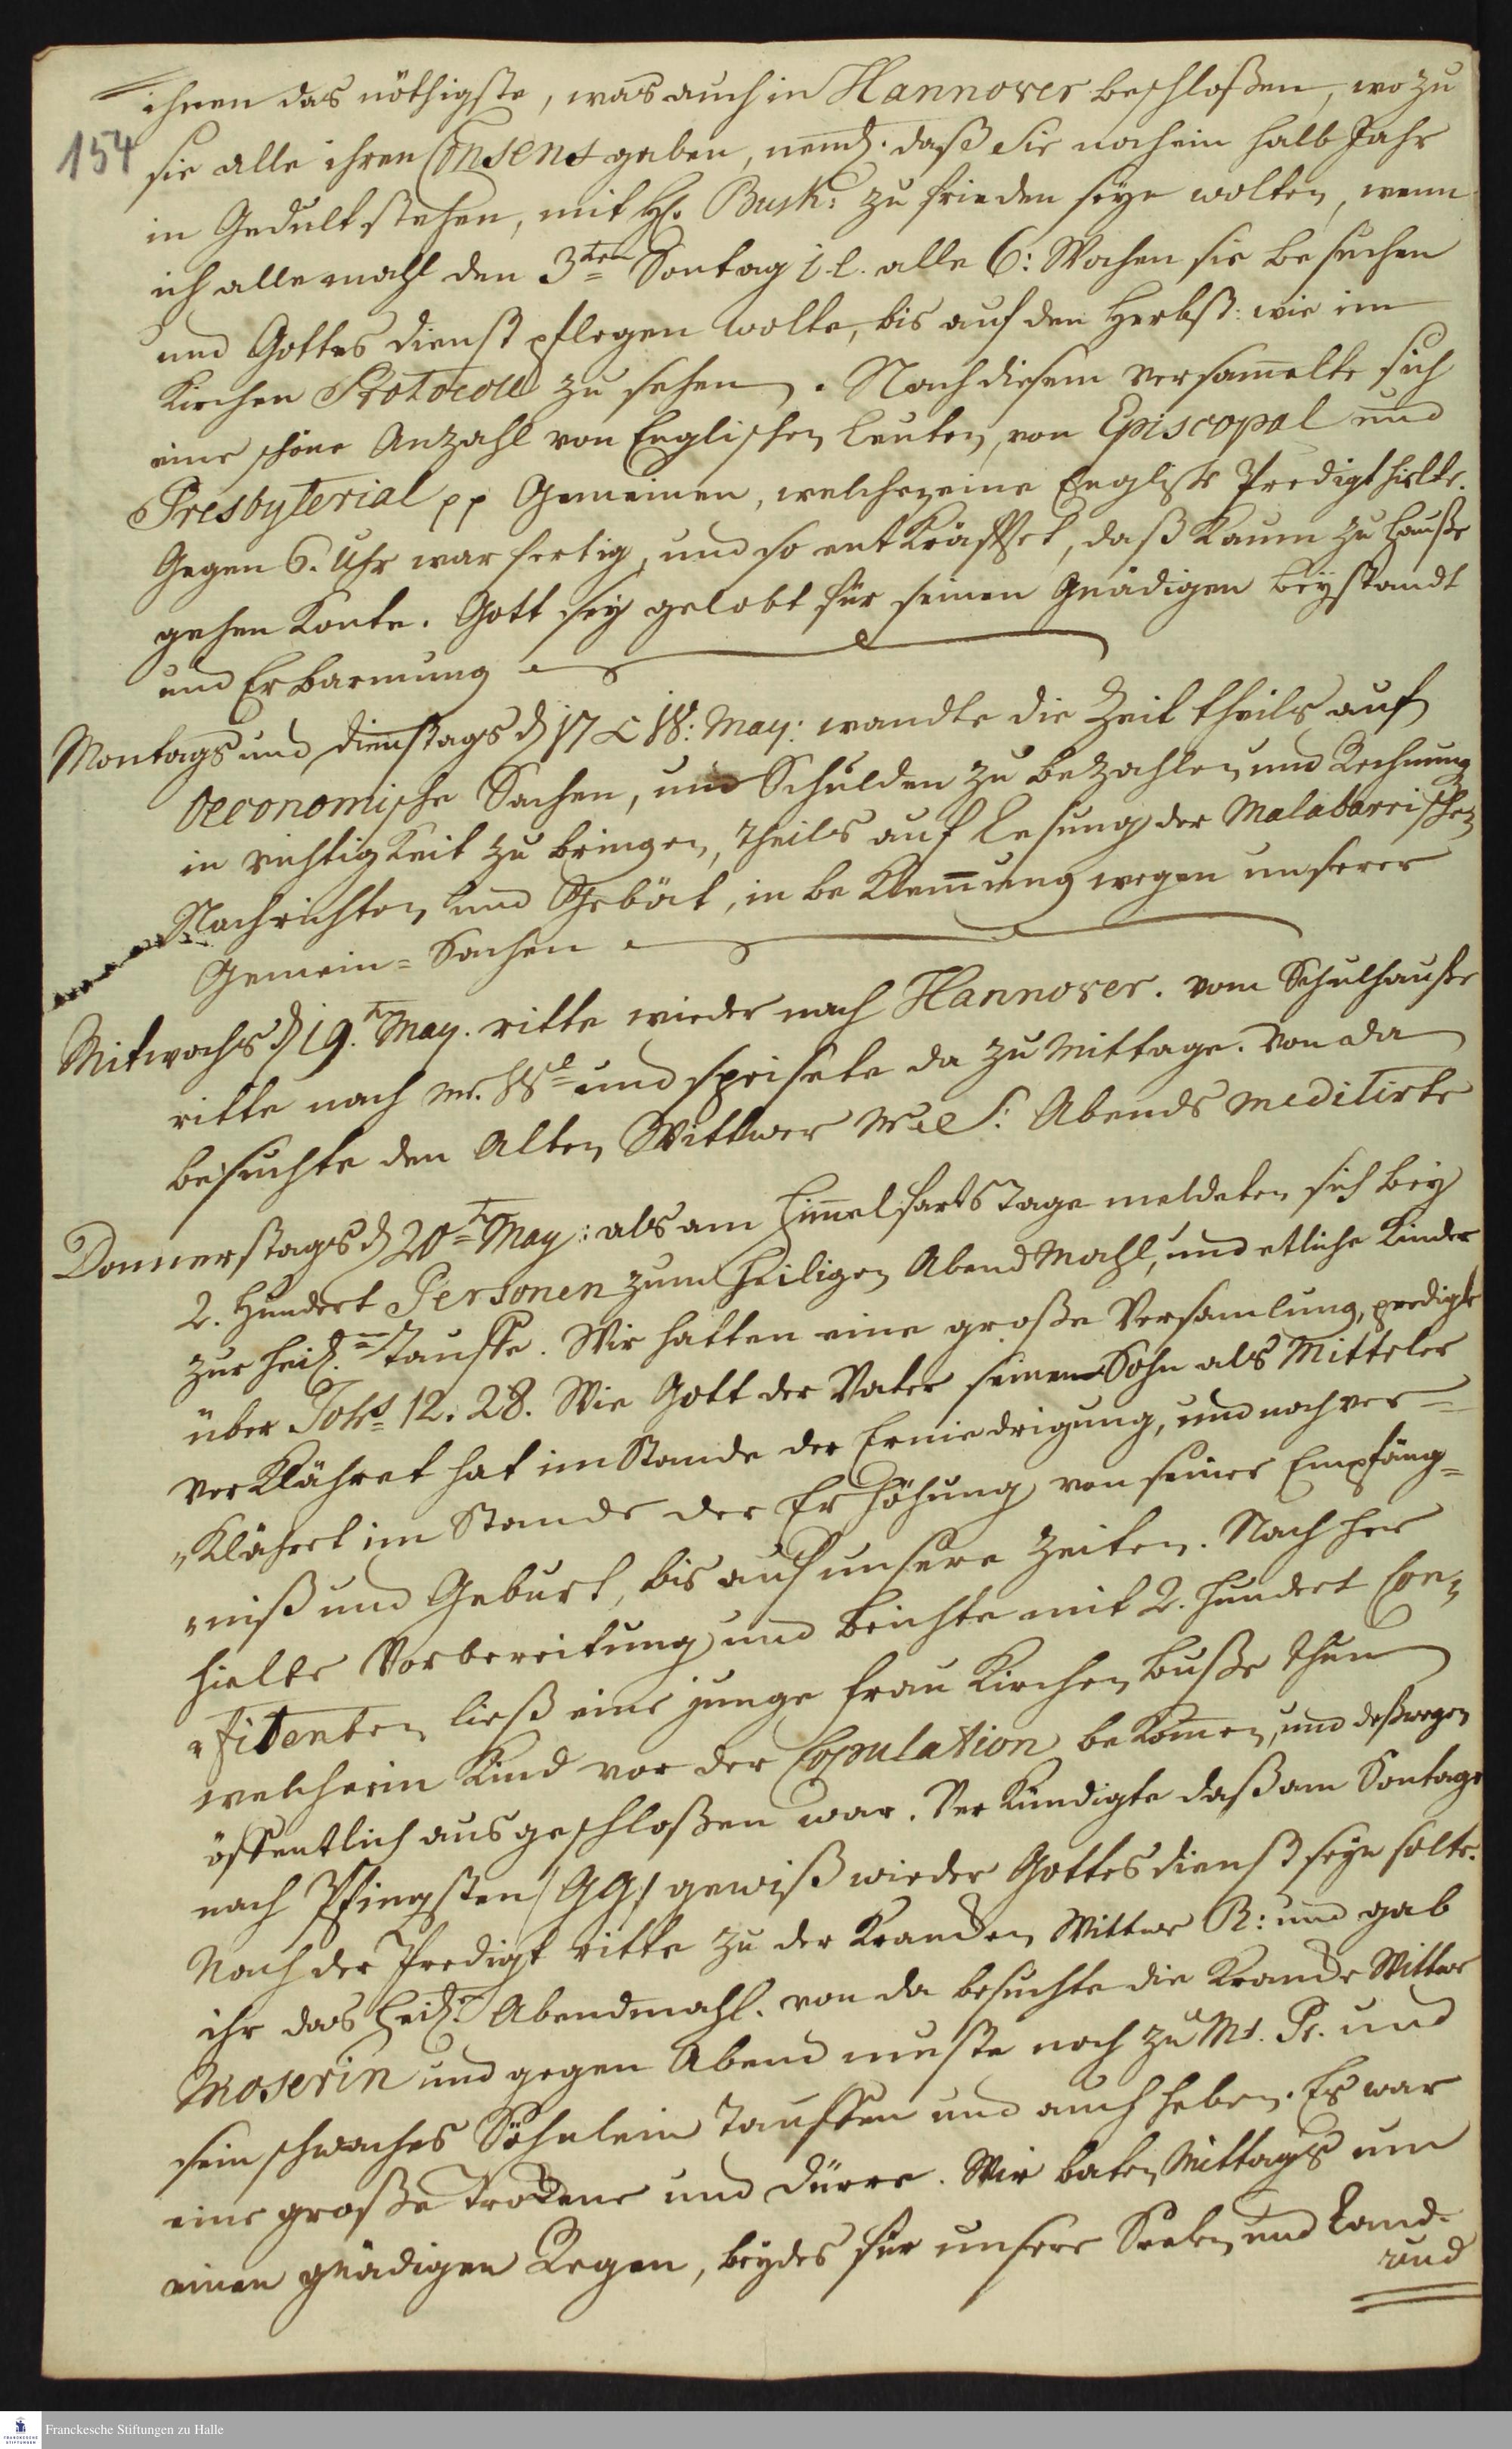 ihnen das nöthigste, was auch in Hannover beschloßen, wozu
154
sie alle ihren Consens gaben, neml. daß Sie noch ein halb Jahr
in Gedult stehen, mit H. Busk: zu frieden seyn wolten, wenn
ich allemahl den 3ten Sontag i. e. alle 6: Wochen sie besuchen
und Gottesdienst pflegen wolte, bis auf den Herbst: wie im
Kirchen Protocoll zu sehen. Nach diesem versam̅elte sich
eine schöne Anzahl von Englischen Leuten, von Episcopal und
Presbyterial pp Gemeinen, welchen eine Englische Predigt hielte.
Gegen 6. Uhr war fertig, und so entkräfftet, daß kaum zu Hauße
gehen konte. Gott sey gelobt für seinen Gnädigen beystandt
und Erbarmung
Montags und dienstags d 17 & 18: May: wandte die Zeit theils auf
Oeconomische Sachen, um Schulden zu bezahlen und Rechnung
in richtigkeit zu bringen, theils auf Lesung der Malabarischen
Nachrichten und Gebät, in beklem̅ung wegen unserer
Gemein-Sachen
Mitwochs d 19.t May. ritte wieder nach Hannover. vom Schulhauße
ritte nach Mr. und speisete da zu Mittage. Von da
besuchte den Alten Wittwer Abends meditirte
Donnerstags d 20t May: als am Him̅elfarts Tage meldeten sich bey
2. Hundert Personen zum heiligen AbendMahl, und etliche Kinder
zur heil. Tauffe. Wir hatten eine große Versamlung, predigte
über Joh: 12. 28. Wie Gott der Vater seinen Sohn als Mitteler
verklähret hat im Stande der Erniedrigung, und noch ver=
„klähret im Stande der Erhöhung von seiner Empfäng=
„niß und Geburt, bis auf unsere Zeiten. Nach her
hielte Vorbereitung und Beichte mit 2. hundert Con=
„fitenten, ließ eine junge Frau Kirchen buße thun
welche ein Kind vor der Copulation bekom̅en, und deßwegen
öffentlich ausgeschloßen war. Verkündigte daß am Sontage
nach Pfingsten /GG/ gewiß wieder Gottesdienst seyn solte.
Nach der Predigt ritte zu der krancken Wittwe R: und gab
ihr das heil. Abendmahl. von da besuchte die krancke Wittwe
Moserin und gegen Abend muste noch zu Mr. Pr. und
sein schwaches Söhnlein Tauffen und auch heben. Es war
eine große Trockene und dürre. Wir baten Mittags um
einen gnädigen Regen, beydes für unsere Seelen und Land.
und
Franckesche Stiftungen zu Halle